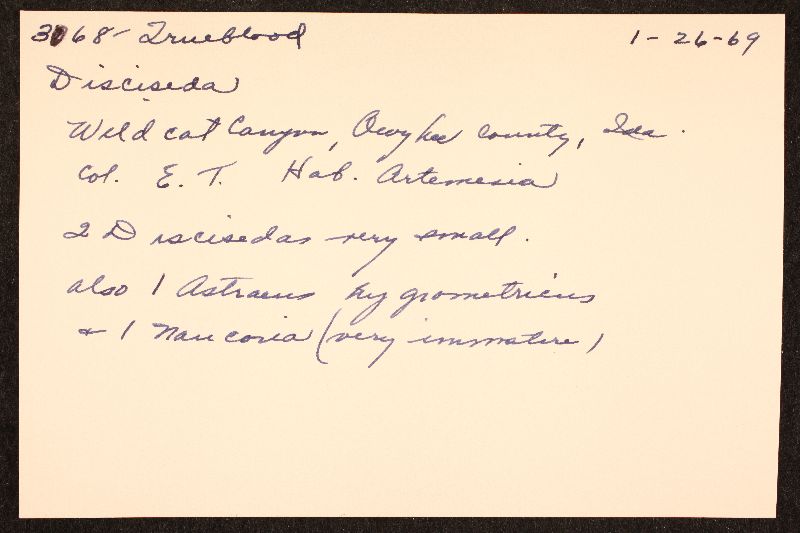 3068- Trueblood 1-26-69
Disciseda
Wild cat Canyon, Owyhee County, Ida.
Col. E. T. Hab. Artemesia
2 Discisedas very small.
also 1 Astraeus hygrometricus
+ 1 Naucoria (very immature)